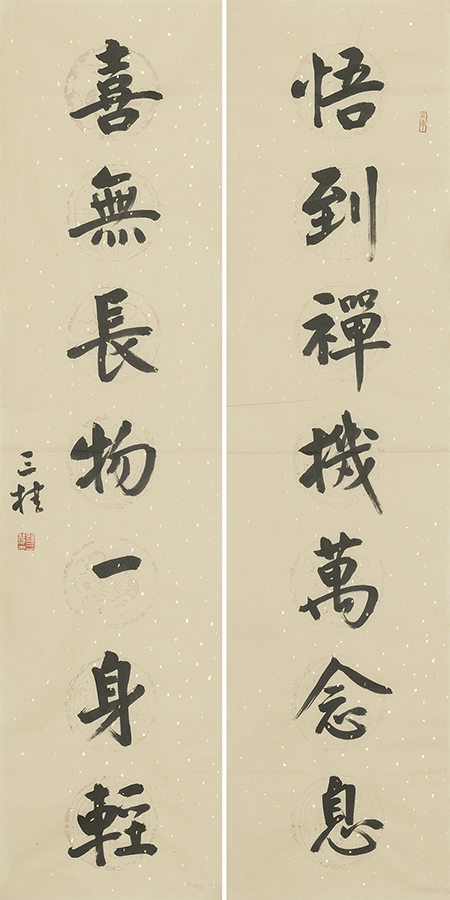 悟到禪機萬念息
喜無長物一身輕
三桂